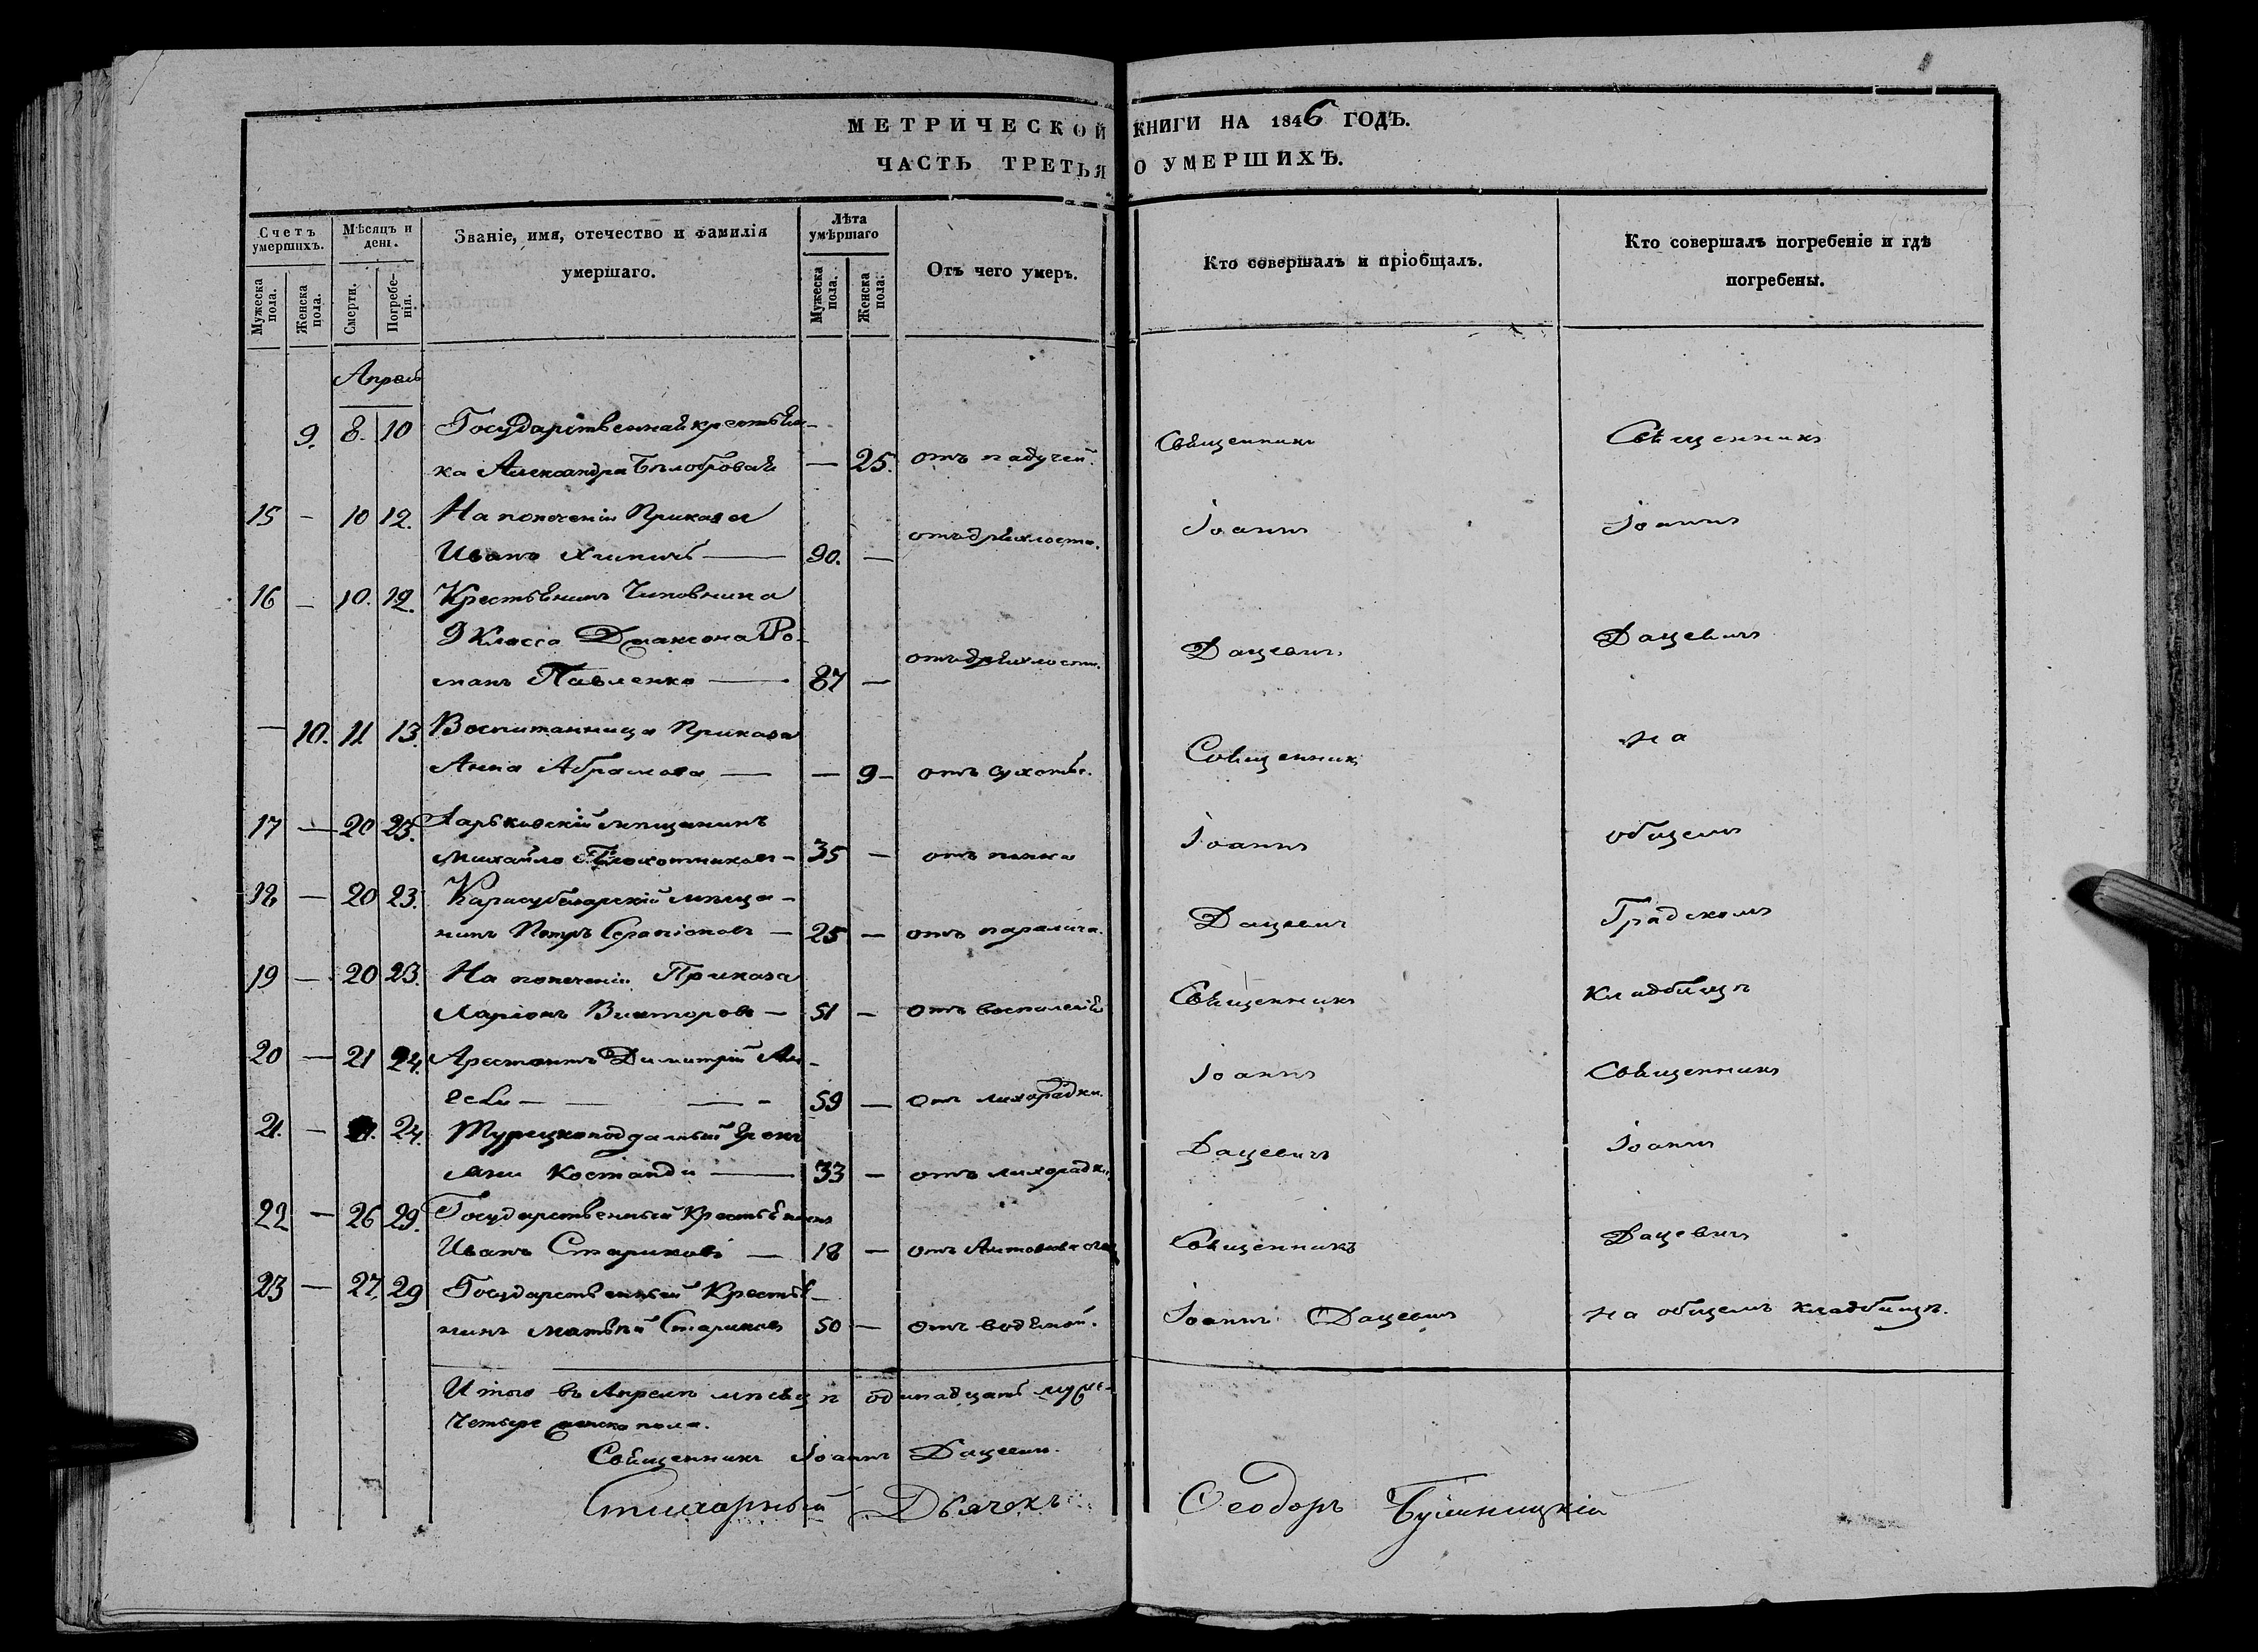 МЕТРИЧЕСКОЙ КНИГИ НА 1846 ГОДЪ.
ЧАСТЬ ТРЕТЬЯ О УМЕРШИХЪ.
Счетъ умершихъ.
Мужеска пола.
Женска пола.
Мѣсяцъ и день.
Смерти.
Погребенія.
Званіе, имя, отечество и фамилія
умершаго.
Лѣта умѣршаго
Мужеска пола.
Женска пола.
Отъ чего умеръ.
Кто совершалъ и пріобщалъ.
Кто совершалъ погребеніе и гдѣ
погребены.
Апрель
9. 8. 10 Государственная крестьян- Священникъ Священникъ
ка Александра Бѣлобровая — 25. отъ падучей.
15 — 10 12. На попеченіи Приказа Іоаннъ Іоаннъ
Иванъ — 90. — отъ дряхлости.
16 — 10. 12. Крестьянинъ Чиновника
9 Класса Ро- Дацевичъ Дацевичъ
манъ Павленко — 87 — отъ дряхлости.
— 10. 11. 13. Воспитанница Приказа на
Анна Абрамова — — 9 — отъ сухотъ. Священник
17 — 20 23. Харьковскій мѣщанинъ Іоаннъ общемъ
Михайло — 35 —
18 — 20 23. Карасубазарскій мѣща- Дацевич Градскомъ
нинъ Петръ Серапіоновъ — 25 — отъ паралича.
19 — 20 23. На попеченіи Приказа Священникъ кладбищѣ
Ларіонъ Викторовъ — 51 — отъ воспаленія
20 — 21 24. Арестантъ Димитрій Іоаннъ Священникъ
— 59 — отъ лихорадки.
21. — 24. Турецкоподданный Дацевичъ Іоаннъ
Костанди — 33 — отъ лихорадки.
22 — 26 29. Государственный Крестьянинъ Дацевичъ
Иванъ Стариковъ — 18 — Священникъ
23 — 27. 29 Государственный Крестья-
нинъ Матвѣй Стариковъ 50 — отъ водяной. Іоаннъ Дацевич на общемъ кладбищѣ.
Итого въ Апрелѣ мѣсяцѣ одинадцать муже-
Четыре женска пола.
Священникъ Іоаннъ Дацевич.
Стихарный Дьячекъ Ѳеодоръ